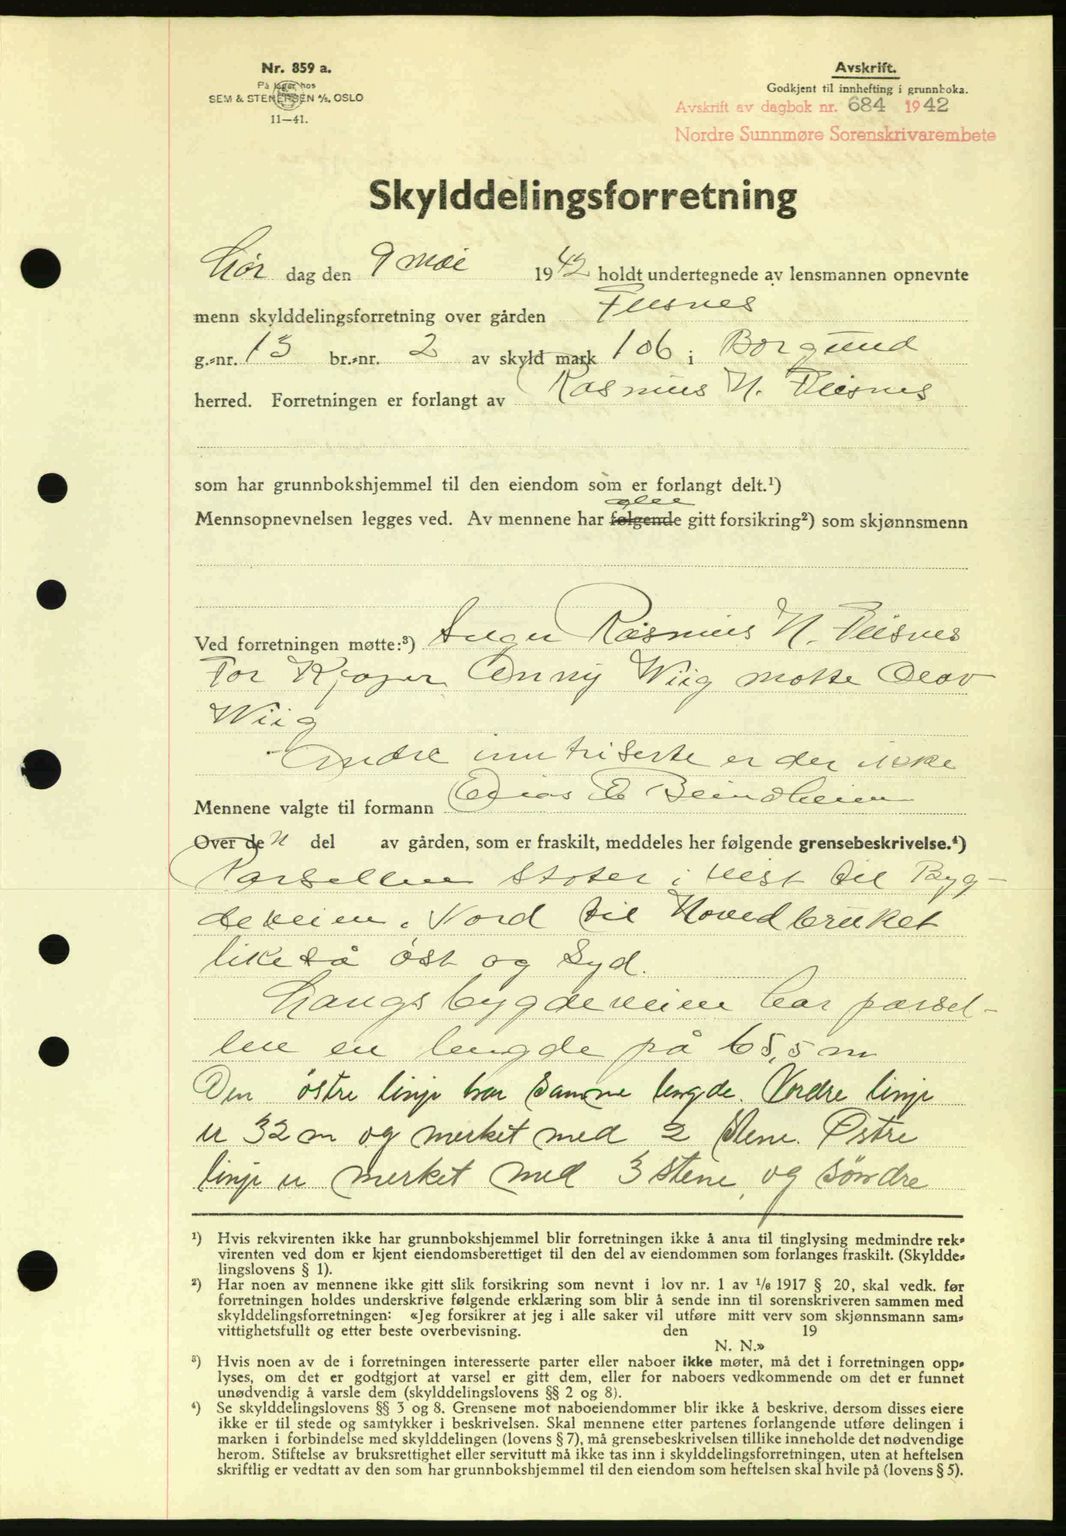 Nr. 859 a.
På lager hos
SEM & STENERSEN A/S, OSLO
11—41.
Avskrift.
Godkjent til innhefting i grunnboka.
Avskrift av dagbok nr. 684 1942
Nordre Sunnmøre Sorenskrivarembete
Skylddelingsforretning
Lör dag den 9 mai 1942 holdt undertegnede av lensmannen opnevnte
menn skylddelingsforretning over gården Flisnes
g.-nr. 13 br.-nr. 2 av skyld mark 1 06 i Borgund
herred. Forretningen er forlangt av Rasmus N. Flisnes
som har grunnbokshjemmel til den eiendom som er forlangt delt.¹)
alle
Mennsopnevnelsen legges ved. Av mennene har følgende gitt forsikring²) som skjønnsmenn
Ved forretningen møtte:³) Selger Rasmus N. Flisnes
For Kjøper Anny Wiig møtte Olav
Wiig
Andre inntriserte er der ikke
Mennene valgte til formann Elias E
Over den del av gården, som er fraskilt, meddeles her følgende grensebeskrivelse.⁴)
Parsellen støter i vest til Byg-
deveien. Nord til Hovedbruket
likeså öst og Syd.
Langs bygdeveien har parsel-
len en lengde på 65,5 m
Den östre linje har samme lengde. Nordre linje
er 32 m og merket med 2 stene. Østre
linje er merket med 3 stene, og söndre
¹) Hvis rekvirenten ikke har grunnbokshjemmel blir forretningen ikke å anta til tinglysing medmindre rek-
virenten ved dom er kjent eiendomsberettiget til den del av eiendommen som forlanges fraskilt. (Skyldde-
lingslovens § 1).
²) Har noen av mennene ikke gitt slik forsikring som nevnt i lov nr. 1 av 1/6 1917 § 20, skal vedk. før
forretningen holdes underskrive følgende erklæring som blir å sende inn til sorenskriveren sammen med
skylddelingsforretningen: «Jeg forsikrer at jeg i alle saker vil utføre mitt verv som skjønnsmann sam-
vittighetsfullt og etter beste overbevisning. den 19
N. N.»
³) Hvis noen av de i forretningen interesserte parter eller naboer ikke møter, må det i forretningen opp-
lyses, om det er godtgjort at varsel er gitt dem, eller for naboers vedkommende om det er funnet
unødvendig å varsle dem (skylddelingslovens §§ 2 og 8).
⁴) Se skylddelingslovens §§ 3 og 8. Grensene mot naboeiendommer blir ikke å beskrive, dersom disses eiere
ikke er til stede og samtykker i beskrivelsen. Skal mennene etter partenes forlangende utføre delingen i
marken i forbindelse med skylddelingen (lovens § 7), må grensebeskrivelsen tillike inneholde det nødvendige
herom. Stiftelse av bruksrettighet eller servitutt må ikke tas inn i skylddelingsforretningen, uten at heftelsen
skriftlig er vedtatt av den som har grunnbokshjemmel til den eiendom som heftelsen skal hvile på (lovens § 5).